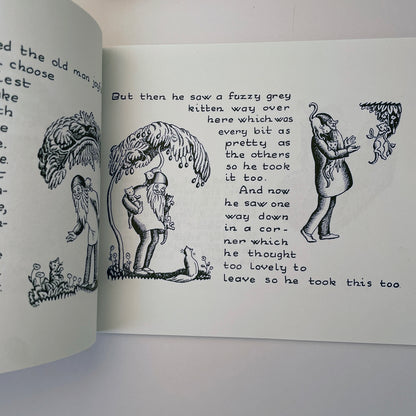 ed the old man joy
choose
est
ke
th
e
e.
e.
-
n-
e,
s,
e
But then he saw a fuzzy grey
kitten way over
here which was
every bit as
pretty as
the others
so he took
it too.
And now
he saw one
way down
in a cor-
ner which
he thought
too lovely to
leave so he took this too.